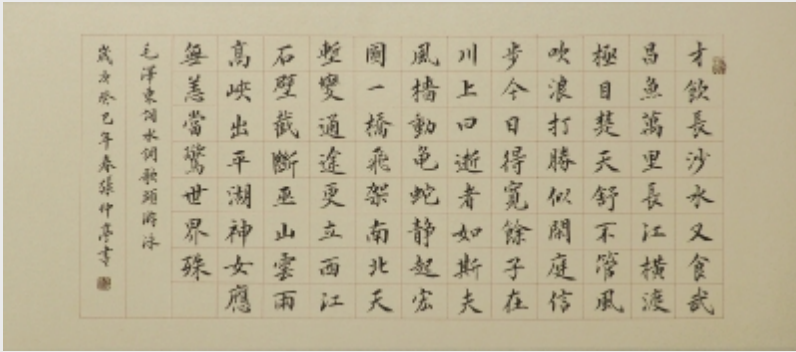 才飲長沙水又食武
昌魚萬里長江橫渡
極目楚天舒不管風
吹浪打勝似閑庭信
步今日得寬餘子在
川上曰逝者如斯夫
風檣動龜蛇静起宏
圖一橋飛架南北天
塹變通途更立西江
石壁截斷巫山雲雨
高峽出平湖神女應
無恙當驚世界殊
毛澤東詞水調歌頭游泳
歲次癸巳年春張仲亭書